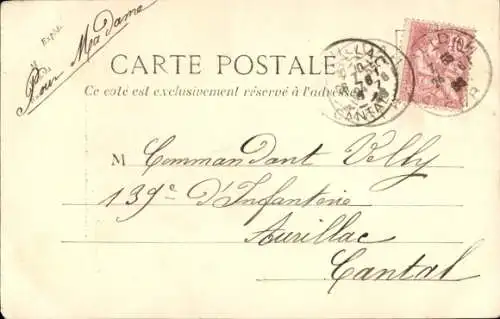 Pour Madame
CARTE POSTALE
Ce côté est exclusivement réservé à l'adresse
AURILLAC
CANTAL
10
M Commandant Velly
139e d'Infanterie
Aurillac
Cantal